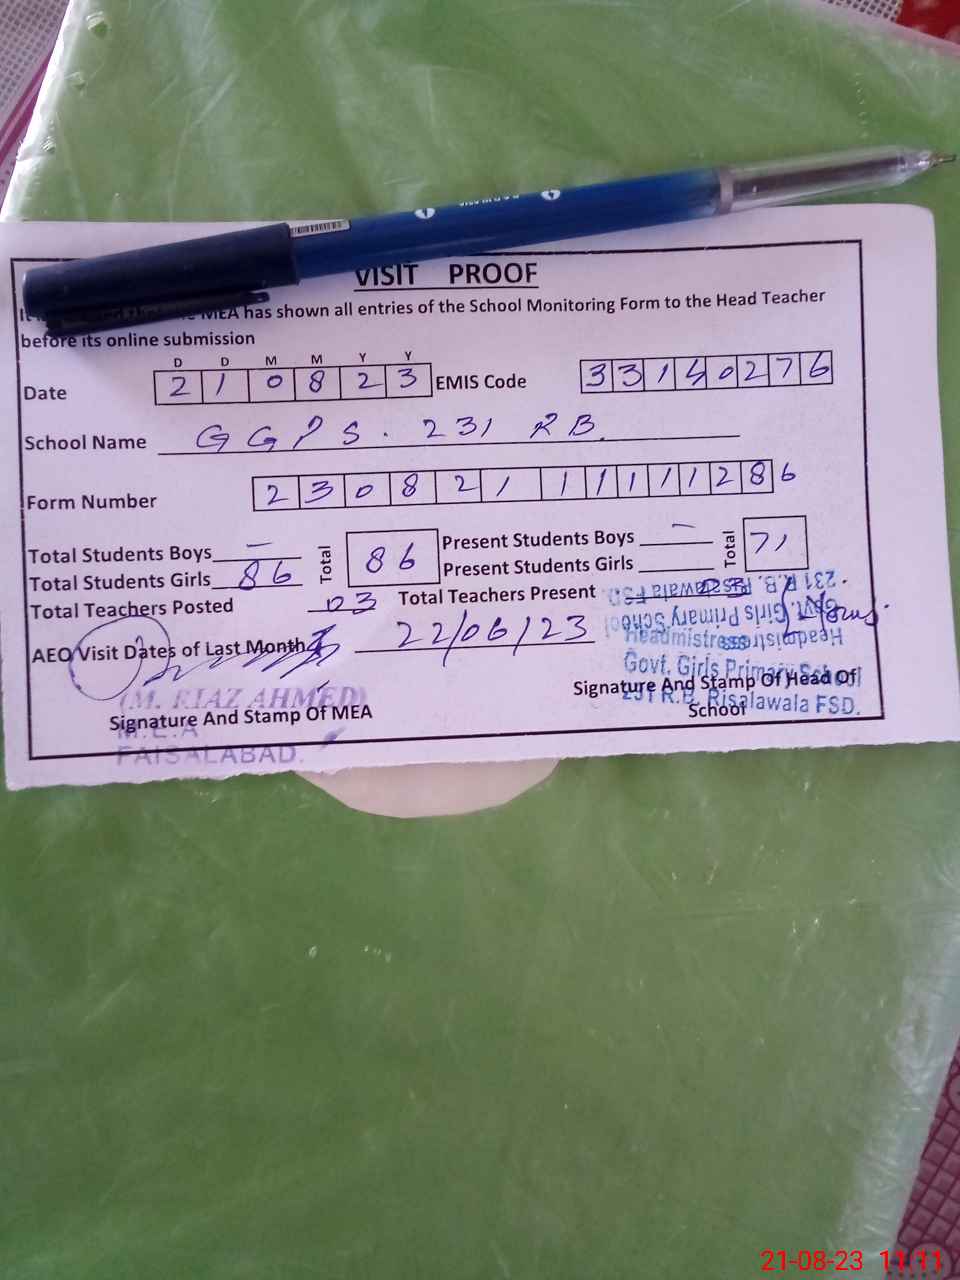 VISIT PROOF
MEA has shown all entries of the School Monitoring Form to the Head Teacher
before its online submission
D D M M Y Y
Date 21 08 23 EMIS Code 33140276
School Name GGPS. 231 RB.
Form Number 2308211111286
Total Students Boys — Total 86 Present Students Boys — Total 71
Total Students Girls 86 Present Students Girls
Total Teachers Posted 03 Total Teachers Present 03
231 R.B. Risalawala FSD.
Govt. Girls Primary School
Headmistress
AEO Visit Dates of Last Month 22/06/23
Headmistress
Govt. Girls Primary School
231 R.B. Risalawala FSD.
(M. RIAZ AHMED)
M.E.A
FAISALABAD.
Signature And Stamp Of MEA
Signature And Stamp Of Head Of
School
21-08-23 11:11